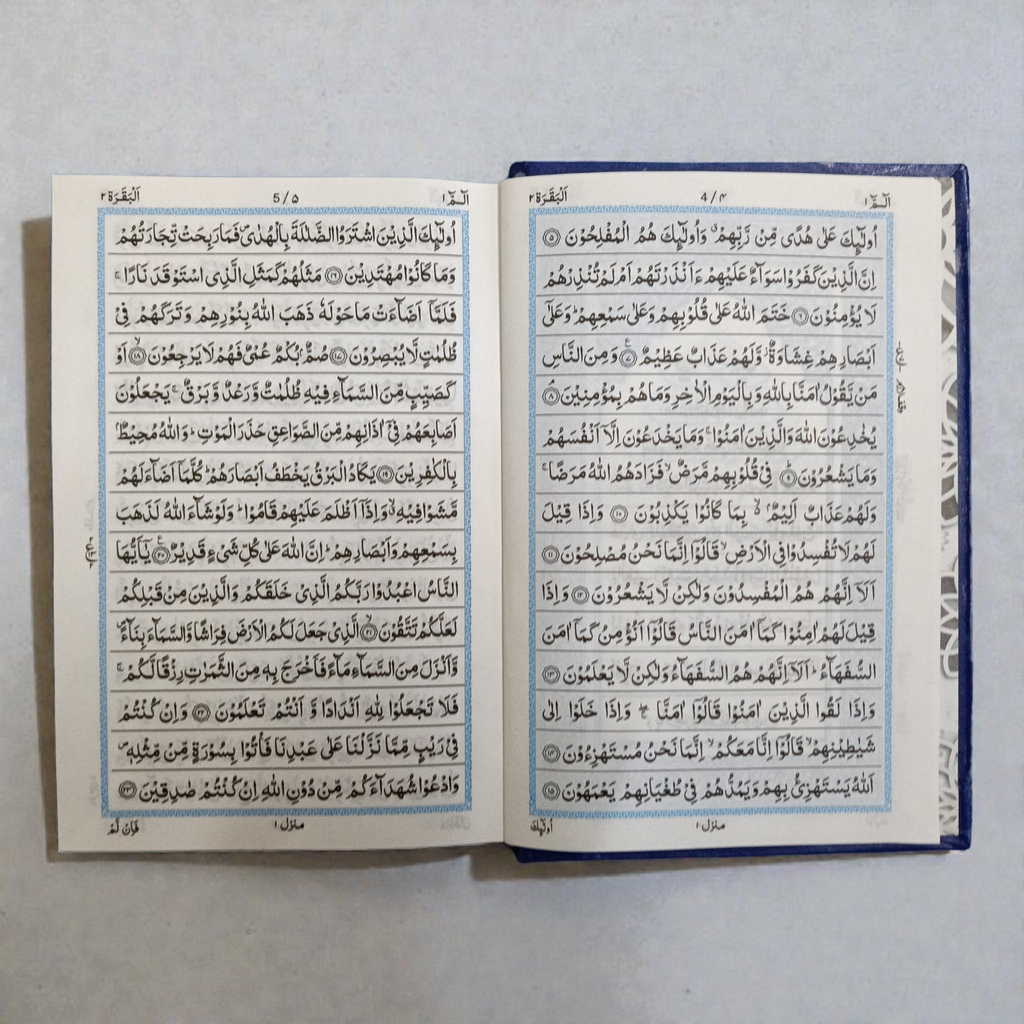 الٓمّٓ ۱
4/۴
اَلْبَقَرَة ۲
اُولٰٓئِكَ عَلٰى هُدًى مِّنْ رَّبِّهِمْ ۙ وَاُولٰٓئِكَ هُمُ الْمُفْلِحُوْنَ ۝۵
اِنَّ الَّذِيْنَ كَفَرُوْا سَوَآءٌ عَلَيْهِمْ ءَاَنْذَرْتَهُمْ اَمْ لَمْ تُنْذِرْهُمْ
لَا يُؤْمِنُوْنَ ۝۶ خَتَمَ اللّٰهُ عَلٰى قُلُوْبِهِمْ وَعَلٰى سَمْعِهِمْ ؕ وَعَلٰٓى
اَبْصَارِهِمْ غِشَاوَةٌ ؗ وَّلَهُمْ عَذَابٌ عَظِيْمٌ ۝۷ وَمِنَ النَّاسِ
مَنْ يَّقُوْلُ اٰمَنَّا بِاللّٰهِ وَبِالْيَوْمِ الْاٰخِرِ وَمَا هُمْ بِمُؤْمِنِيْنَ ۝۸
يُخٰدِعُوْنَ اللّٰهَ وَالَّذِيْنَ اٰمَنُوْا ۚ وَمَا يَخْدَعُوْنَ اِلَّآ اَنْفُسَهُمْ
وَمَا يَشْعُرُوْنَ ۝۹ فِيْ قُلُوْبِهِمْ مَّرَضٌ ۙ فَزَادَهُمُ اللّٰهُ مَرَضًا ۚ
وَلَهُمْ عَذَابٌ اَلِيْمٌ ۙ بِمَا كَانُوْا يَكْذِبُوْنَ ۝۱۰ وَاِذَا قِيْلَ
لَهُمْ لَا تُفْسِدُوْا فِي الْاَرْضِ ۙ قَالُوْٓا اِنَّمَا نَحْنُ مُصْلِحُوْنَ ۝۱۱
اَلَآ اِنَّهُمْ هُمُ الْمُفْسِدُوْنَ وَلٰكِنْ لَّا يَشْعُرُوْنَ ۝۱۲ وَاِذَا
قِيْلَ لَهُمْ اٰمِنُوْا كَمَآ اٰمَنَ النَّاسُ قَالُوْٓا اَنُؤْمِنُ كَمَآ اٰمَنَ
السُّفَهَآءُ ؕ اَلَآ اِنَّهُمْ هُمُ السُّفَهَآءُ وَلٰكِنْ لَّا يَعْلَمُوْنَ ۝۱۳
وَاِذَا لَقُوا الَّذِيْنَ اٰمَنُوْا قَالُوْٓا اٰمَنَّا ۖۚ وَاِذَا خَلَوْا اِلٰى
شَيٰطِيْنِهِمْ ۙ قَالُوْٓا اِنَّا مَعَكُمْ ۙ اِنَّمَا نَحْنُ مُسْتَهْزِءُوْنَ ۝۱۴
اَللّٰهُ يَسْتَهْزِئُ بِهِمْ وَيَمُدُّهُمْ فِيْ طُغْيَانِهِمْ يَعْمَهُوْنَ ۝۱۵
منزل ۱
اُولٰٓئِكَ
الٓمّٓ ۱
5/۵
اَلْبَقَرَة ۲
اُولٰٓئِكَ الَّذِيْنَ اشْتَرَوُا الضَّلٰلَةَ بِالْهُدٰى ۪ فَمَا رَبِحَتْ تِّجَارَتُهُمْ
وَمَا كَانُوْا مُهْتَدِيْنَ ۝۱۶ مَثَلُهُمْ كَمَثَلِ الَّذِى اسْتَوْقَدَ نَارًا ۚ
فَلَمَّآ اَضَآءَتْ مَا حَوْلَهٗ ذَهَبَ اللّٰهُ بِنُوْرِهِمْ وَتَرَكَهُمْ فِيْ
ظُلُمٰتٍ لَّا يُبْصِرُوْنَ ۝۱۷ صُمٌّۢ بُكْمٌ عُمْيٌ فَهُمْ لَا يَرْجِعُوْنَ ۝۱۸ اَوْ
كَصَيِّبٍ مِّنَ السَّمَآءِ فِيْهِ ظُلُمٰتٌ وَّرَعْدٌ وَّبَرْقٌ ۚ يَجْعَلُوْنَ
اَصَابِعَهُمْ فِيْٓ اٰذَانِهِمْ مِّنَ الصَّوَاعِقِ حَذَرَ الْمَوْتِ ؕ وَاللّٰهُ مُحِيْطٌۢ
بِالْكٰفِرِيْنَ ۝۱۹ يَكَادُ الْبَرْقُ يَخْطَفُ اَبْصَارَهُمْ ؕ كُلَّمَآ اَضَآءَ لَهُمْ
مَّشَوْا فِيْهِ ۙ وَاِذَآ اَظْلَمَ عَلَيْهِمْ قَامُوْا ؕ وَلَوْ شَآءَ اللّٰهُ لَذَهَبَ
بِسَمْعِهِمْ وَاَبْصَارِهِمْ ؕ اِنَّ اللّٰهَ عَلٰى كُلِّ شَيْءٍ قَدِيْرٌ ۝۲۰ يٰٓاَيُّهَا
النَّاسُ اعْبُدُوْا رَبَّكُمُ الَّذِيْ خَلَقَكُمْ وَالَّذِيْنَ مِنْ قَبْلِكُمْ
لَعَلَّكُمْ تَتَّقُوْنَ ۝۲۱ الَّذِيْ جَعَلَ لَكُمُ الْاَرْضَ فِرَاشًا وَّالسَّمَآءَ بِنَآءً ۪
وَّاَنْزَلَ مِنَ السَّمَآءِ مَآءً فَاَخْرَجَ بِهٖ مِنَ الثَّمَرٰتِ رِزْقًا لَّكُمْ ۚ
فَلَا تَجْعَلُوْا لِلّٰهِ اَنْدَادًا وَّ اَنْتُمْ تَعْلَمُوْنَ ۝۲۲ وَاِنْ كُنْتُمْ
فِيْ رَيْبٍ مِّمَّا نَزَّلْنَا عَلٰى عَبْدِنَا فَاْتُوْا بِسُوْرَةٍ مِّنْ مِّثْلِهٖ ۪
وَادْعُوْا شُهَدَآءَكُمْ مِّنْ دُوْنِ اللّٰهِ اِنْ كُنْتُمْ صٰدِقِيْنَ ۝۲۳
منزل ۱
فَاِنْ لَّمْ